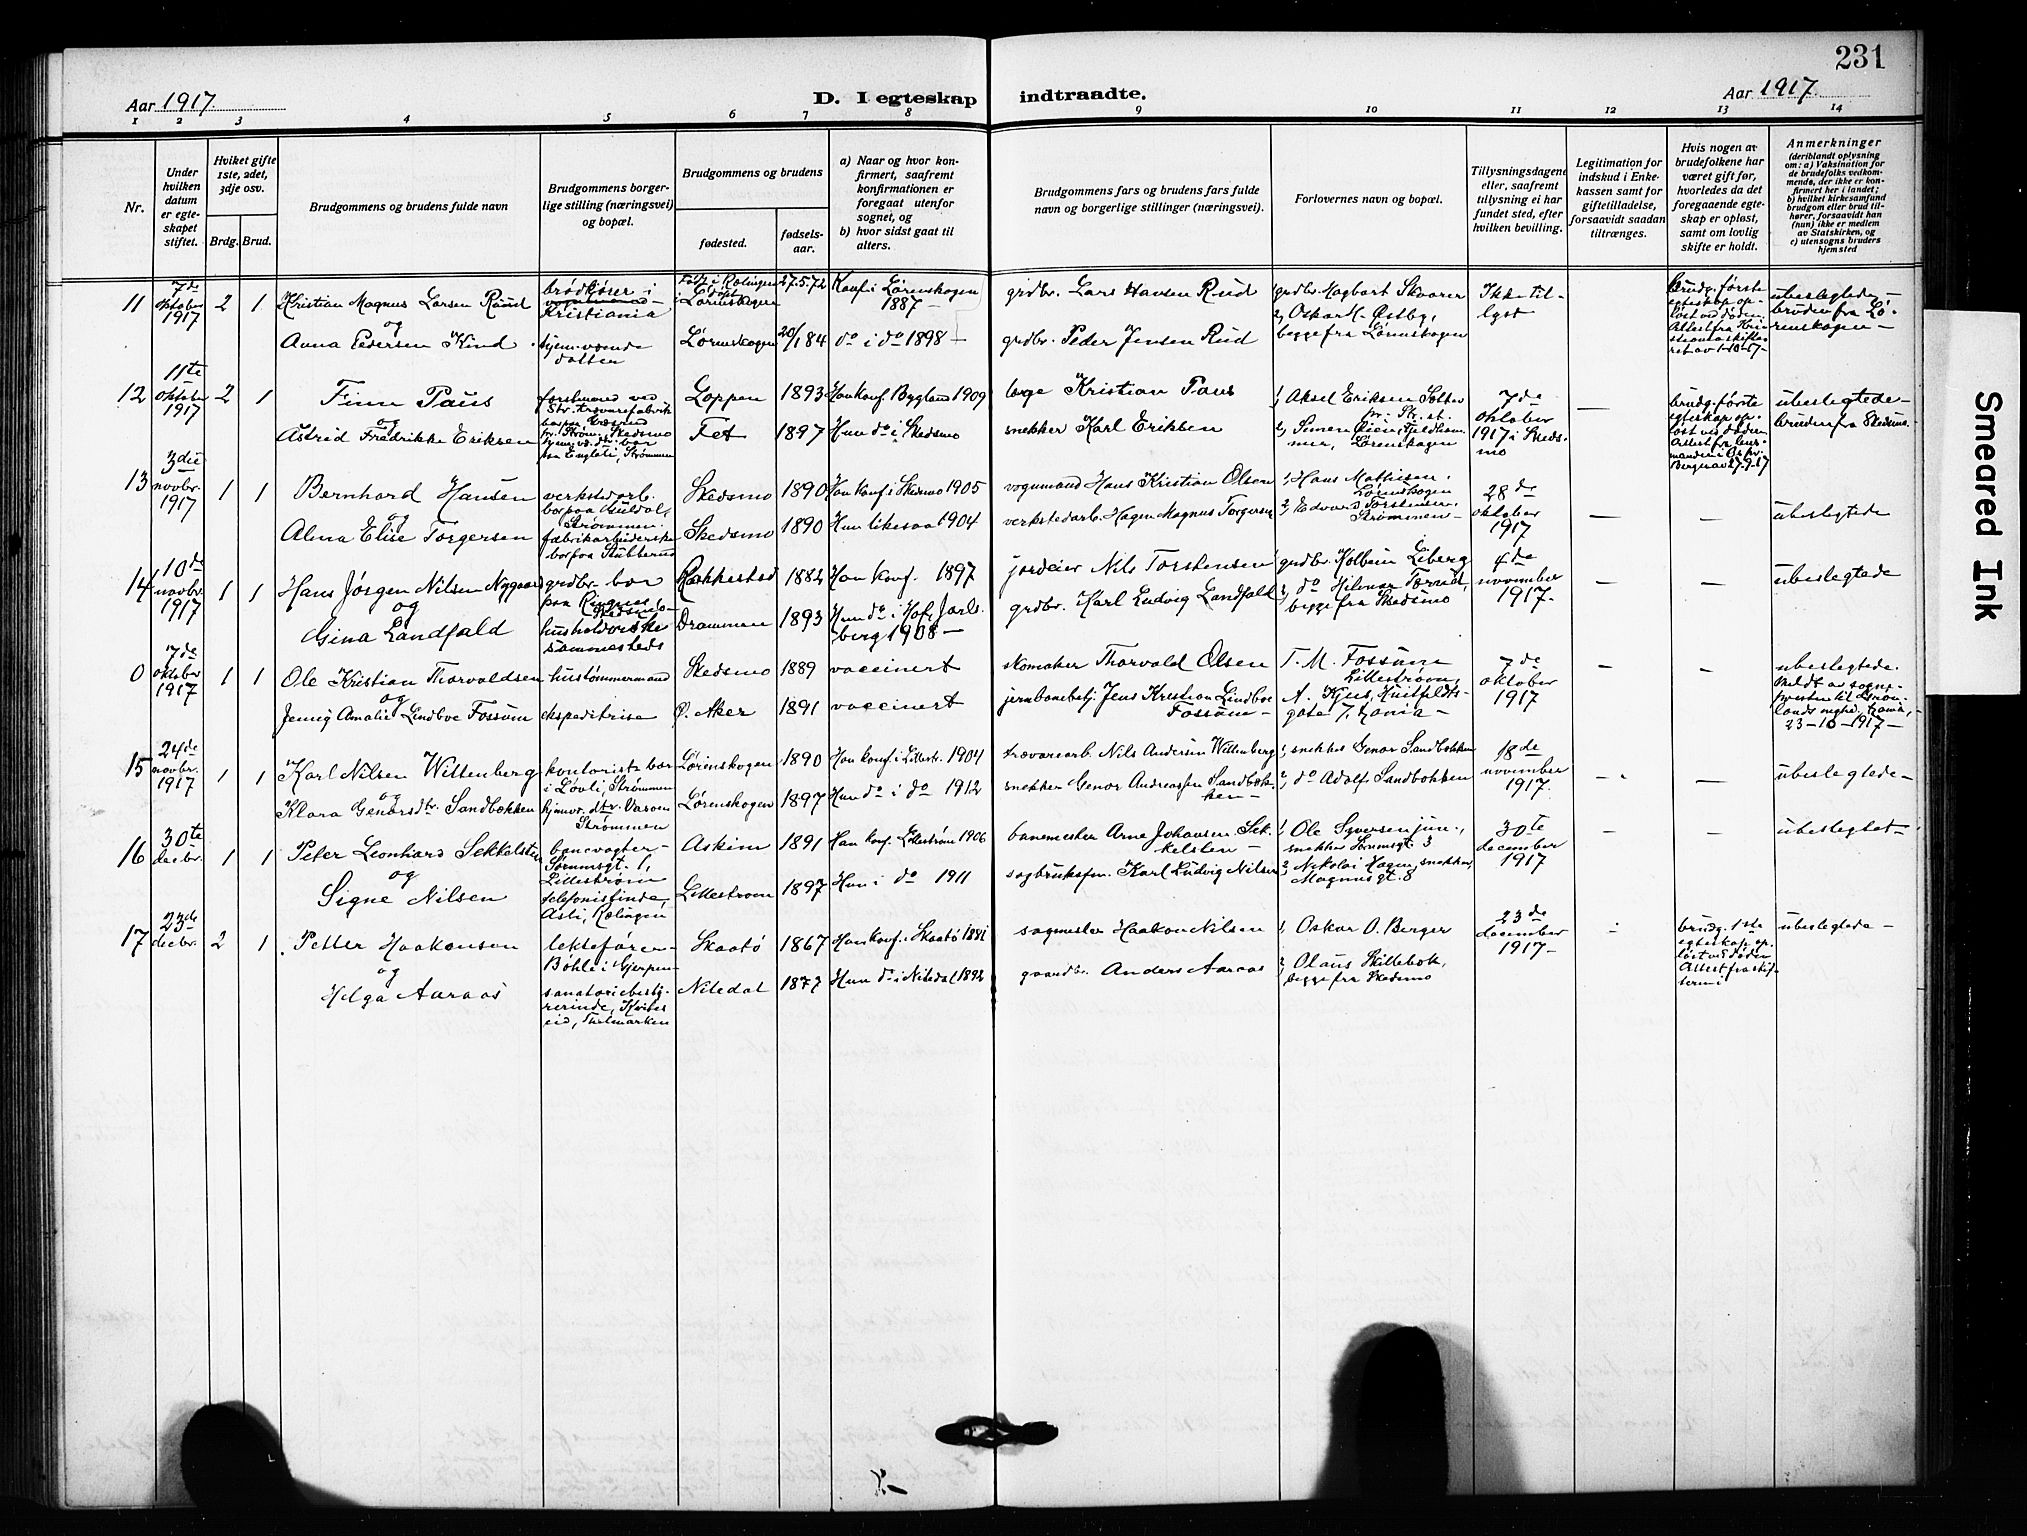 231
Aar 1917.
D. I egteskap indtraadte.
Aar 1917.
1 2 3 4 5 6 7 8 9 10 11 12 13 14
Nr.
Under hvilken datum er egteskapet stiftet.
Hviket gifte 1ste, 2det, 3dje osv.
Brdg. Brud.
Brudgommens og brudens fulde navn
Brudgommens borgerlige stilling (næringsvei) og bopæl.
Brudgommens og brudens
fødested.
fødselsaar.
a) Naar og hvor konfirmert, saafremt konfirmationen er foregaat utenfor sognet, og
b) hvor sidst gaat til alters.
Brudgommens fars og brudens fars fulde navn og borgerlige stillinger (næringsvei).
Forlovernes navn og bopæl.
Tillysningsdagene eller, saafremt tillysning ei har fundet sted, efter hvilken bevilling.
Legitimation for indskud i Enkekassen samt for giftetilladelse, forsaavidt saadan tiltrænges.
Hvis nogen av brudefolkene har været gift før, hvorledes da det foregaaende egteskap er opløst, samt om lovlig skifte er holdt.
Anmerkninger
(deriblandt oplysning om: a) Vaksination for de brudefolks vedkommende, der ikke er konfirmert her i landet; b) hvilket kirkesamfund brudgom eller brud tilhører, forsaavidt han (hun) ikke er medlem av Statskirken, og c) utensogns bruders hjemsted
11 7de oktober 1917 2 1 Kristian Magnus Larsen Ruud brødkjører i Kristiania Lørenskogen 27.5.72 Konf. i Lørenskogen 1887 grdbr. Lars Hansen Rud
og
Anna Pedersen Kind hjemmeværende datter Lørenskogen 20/1 84 do i do 1898 grdbr. Peder Jensen Rud
1, grdbr. Hagbart Skvarer 2, Oskar H. Østby, begge fra Lørenskogen
Ikke tillyst
brudg. første egteskap opløst ved døden.
ubeslegtede bruden fra Lørenskogen
12 11te oktober 1917 2 1 Finn Paus Loppen 1893 Han konf. Bygland 1909 læge Kristian Paus
og
Astrid Fredrikke Eriksen Fet 1897 Hun do i Skedsmo snekker Karl Eriksen
1, Aksel Eriksen
2, Simen Lørenskogen
7de oktober 1917 i Skedsmo
—
brudg. første egteskap opløst ved døden
ubeslegtede bruden fra Skedsmo
13 3die novbr. 1917 1 1 Bernhard Hansen verkstedarb. Strømmen. Skedsmo 1890 Han konf. i Skedsmo 1905 vognmand Hans Kristian Olsen
og
Alma Elise Torgersen fabrikarbeiderske bor paa Stubberud Skedsmo 1890 Hun likesaa 1904 verkstedarb. Hagen Magnus Torgersen
1, Hans Mathisen, Lørenskogen
2, Edvard Torstensen, Strømmen
28de oktober 1917
— — ubeslegtede
14 10de novbr. 1917 1 1 Hans Jørgen Nilsen Nygaard grdbr. bor paa Ringnes Skedsmo Rakkestad 1882 Han konf. 1897 jordeier Nils Torstensen
og
Gina Landfald husholderske sammesteds Drammen 1893 Hun do i Hof, Jarlsberg 1908 grdbr. Karl Ludvig Landfald
1, grdbr. Kolbein Liberg 2, do Hilmar begge fra Skedsmo
4de november 1917
— — ubeslegtede
0 7de oktober 1917 1 1 Ole Kristian Thorvaldsen hustømmermand Skedsmo 1889 vaccinert skomaker Thorvald Olsen
og
Jenny Amalie Lindboe Fossum ekspeditrise Ø. Aker 1891 vaccinert jernbanebetj. Jens Kristian Lindboe Fossum
T. M. Fossum Lillestrøm,
A. Huitfeldtsgate 7, Kr.ania
7de oktober 1917
— — ubeslegtede. Meldt av sognepresten til Grønlands mgh. Kr.ania, 23-10-1917
15 24de novbr. 1917 1 1 Karl Nilsen Wittenberg kontorist bor i Løvli, Strømmen Lørenskogen 1890 Han konf. i Lillestr. 1904 trævarearb. Nils Andersen Wittenberg
og
Klara Genarsdtr. Sandbekken hjemv. dtr. Strømmen Lørenskogen 1897 Hun do i do 1912 snekker Genar Andreassen Sandbekken
1, snekker Genar Sandbekken
2, do Adolf Sandbekken
18de november 1917
— — ubeslegtede
16 30te decbr. 1 1 Peter Leonhard Sekkelsten banevogter Sørumsgt. 1, Lillestrøm Askim 1891 Han konf. Lillestrøm 1906 banemester Arne Johansen Sekkelsten
og
Signe Nilsen telefonistinde, Asli, Rælingen Lillestrøm 1897 Hun i do 1911 sagbruksfm. Karl Ludvig Nilsen
1, Ole Syversen jun., snekker Sørumsgt. 3
2, Nikolai Hagen, snekker, Magnusgt. 8
30te december 1917
— — ubeslegtet
17 23de decbr. 2 1 Petter Haakonson lektefører Bøhle i Gjerpen Skaatø 1867 Han konf. i Skaatø 1881 sagmester Haakon Nilsen
og
Helga Aaraas sanatoriebestyrerinde, Kviteseid, Thelemarken Nitedal 1877 Hun do i Nitedal 1892 gaardbr. Anders Aaraas
1, Oskar O. Berger
2, Olaus Skillebek, begge fra Skedsmo
23de december 1917
brudg. 1ste egteskap opløst ved døden Attest fra
ubeslegtede
Smeared Ink